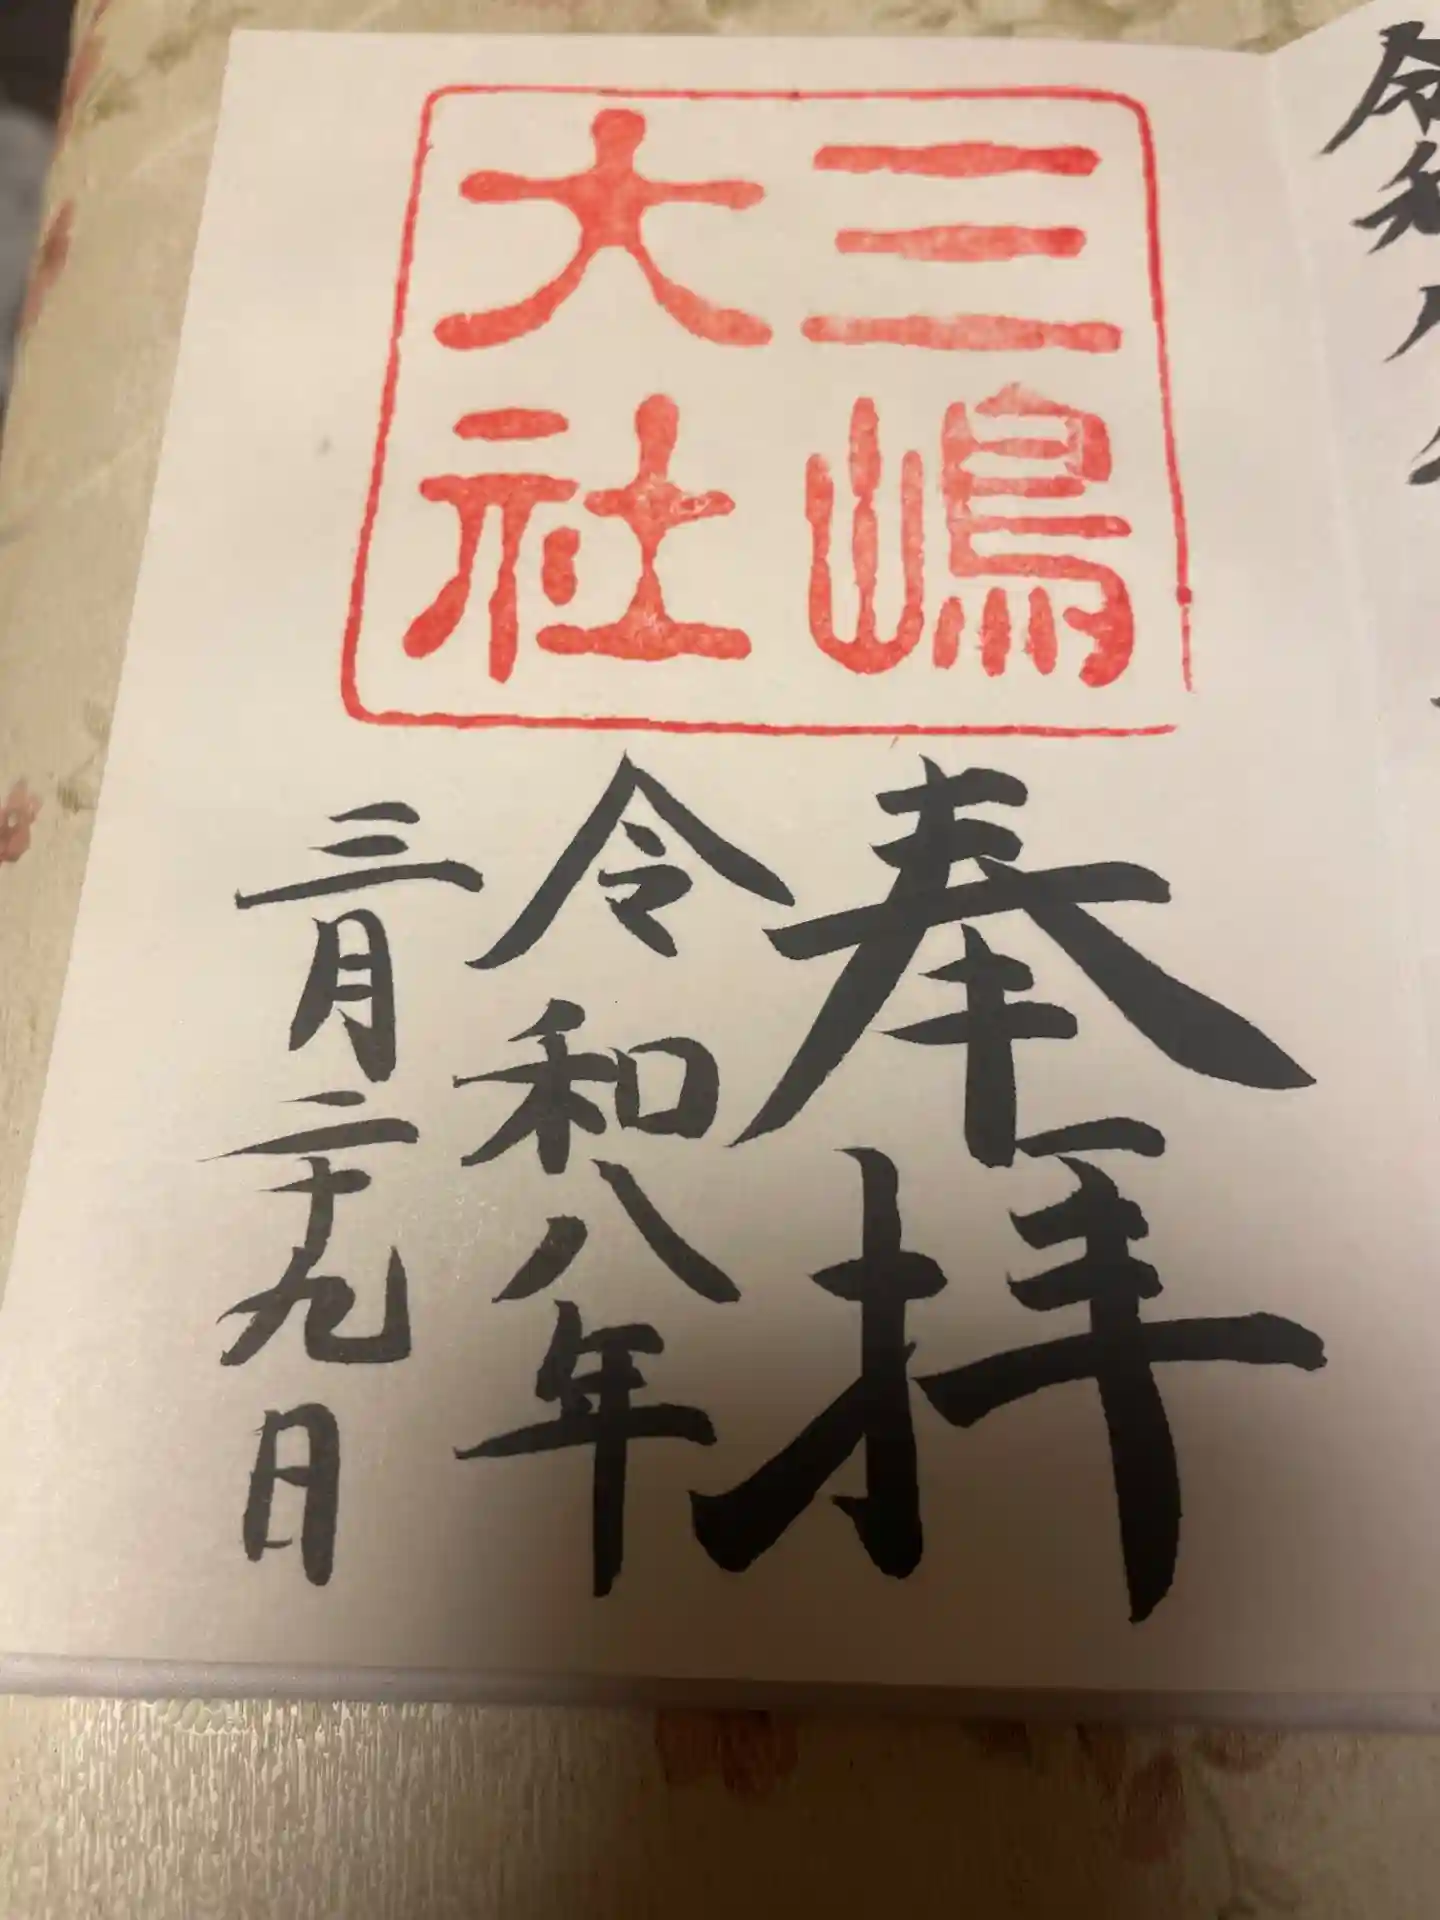 三嶋
大社
奉拝
令和八年
三月二十九日
令和